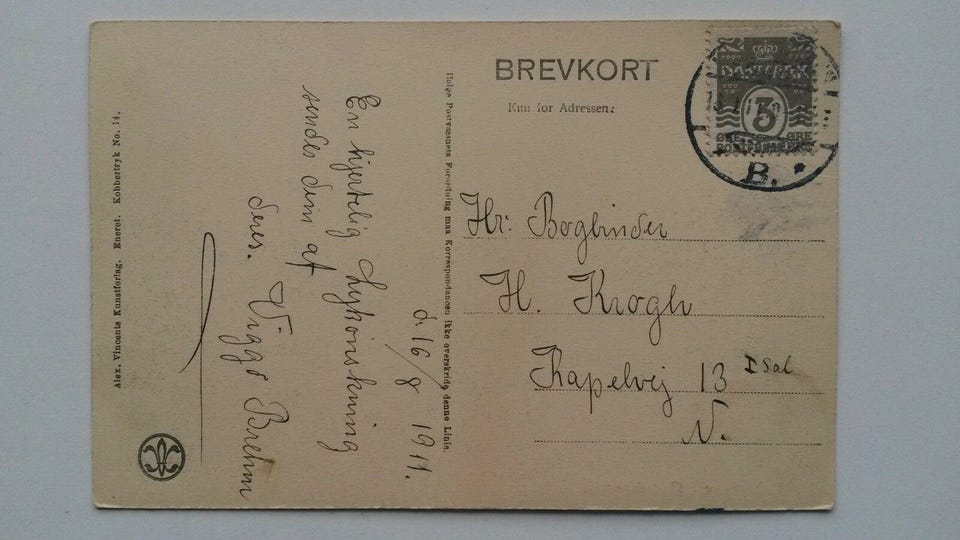 BREVKORT
Kun for Adressen:
DANMARK
3
ØRE ØRE
B.
Hr: Bogbinder
H. Krogh
Kapelvej 13 I Sal
N.
Ifølge Postvæsnets Forordning maa Korrespondancen ikke overskride denne Linie.
d. 16/8 1911.
En hjertelig Lykönskning
sendes dem af
deres. Viggo Brehm
Alex. Vincents Kunstforlag. Eneret. Kobbertryk No. 14.